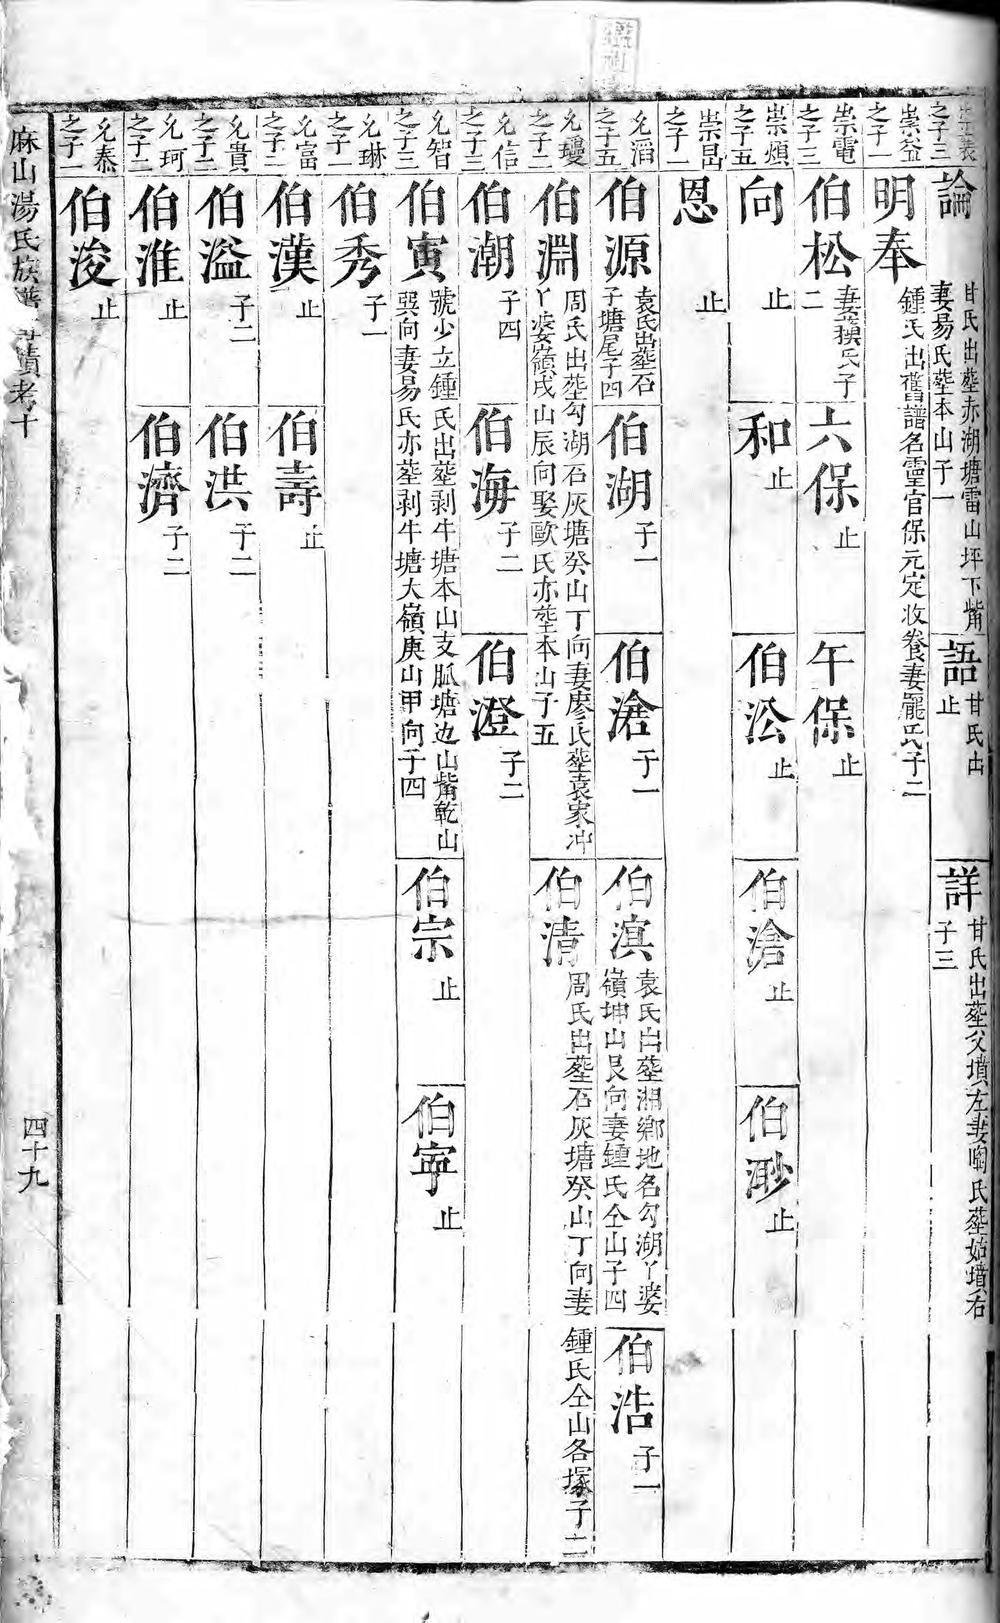 之子三
論
甘氏出塟赤湖塘雷山坪下觜
妻易氏塟本山子一
語
甘氏出
止
詳
甘氏出塟父墳左妻陶氏塟姑墳右
子三
崇益
之子一
明奉
鍾氏出舊譜名靈官保元定收養妻龎氏子二
崇電
之子三
伯松
妻蕭氏子
二
六保
止
午保
止
崇煩
之子五
向
止
和
止
伯㳂
止
伯滄
止
伯渺
止
崇昂
之子一
恩
止
允滔
之子五
伯源
袁氏出塟石
子塘尾子四
伯湖
子一
伯滄
子一
伯滇
袁氏出塟湘鄉地名勾湖丫婆
嶺坤山艮向妻鍾氏仝山子四
伯浩
子一
允瓊
之子二
伯淵
周氏出塟勾湖石灰塘癸山丁向妻廖氏塟袁家冲
丫婆嶺戌山辰向娶歐氏亦塟本山子五
伯清
周氏出塟石灰塘癸山丁向妻
鍾氏仝山各塚子二
允信
之子三
伯潮
子四
伯海
子二
伯澄
子二
允智
之子三
伯寅
號少立鍾氏出塟剥牛塘本山支脈塘边山觜乾山
巽向妻易氏亦塟剥牛塘大嶺庚山甲向子四
伯宗
止
伯寜
止
允琳
之子一
伯秀
子一
允富
之子二
伯漢
止
伯壽
止
允貴
之子二
伯溢
子二
伯洪
子二
允珂
之子二
伯淮
止
伯濟
子二
允泰
之子一
伯浚
止
麻山湯氏族譜
考十
四十九